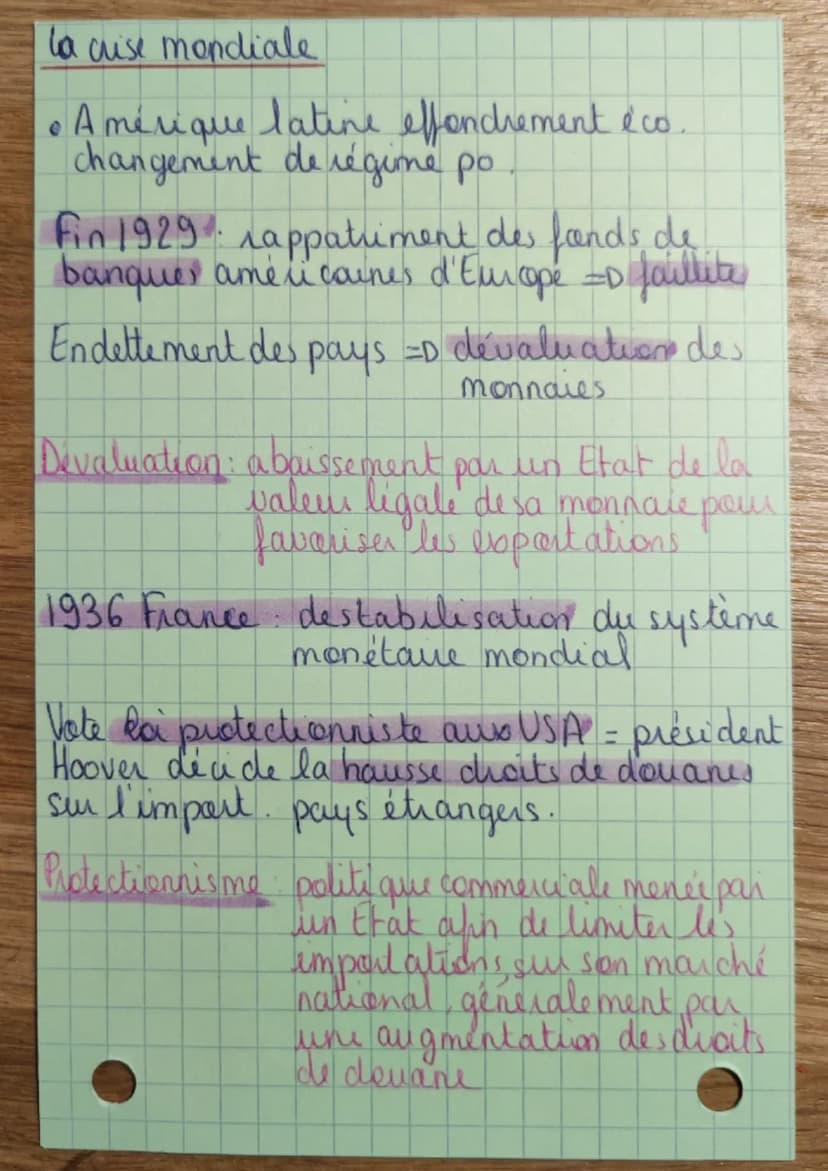 la crise mondiale
• Amérique latine effondrement éco.
changement de régime po.
Fin 1929 : rappatriment des fonds de
banques américaines d'Europe => faillite
Endettement des pays => dévaluation des
monnaies
Dévaluation : abaissement par un Etat de la
valeur légale de sa monnaie pour
favoriser les exportations
1936 France : destabilisation du système
monétaire mondial
Vote loi protectionniste aux USA = président
Hoover décide la hausse droits de douanes
sur l'import. pays étrangers.
Protectionnisme : politique commerciale menée par
un Etat afin de limiter les
importations, sur son marché
national, généralement par
une augmentation des droits
de douane